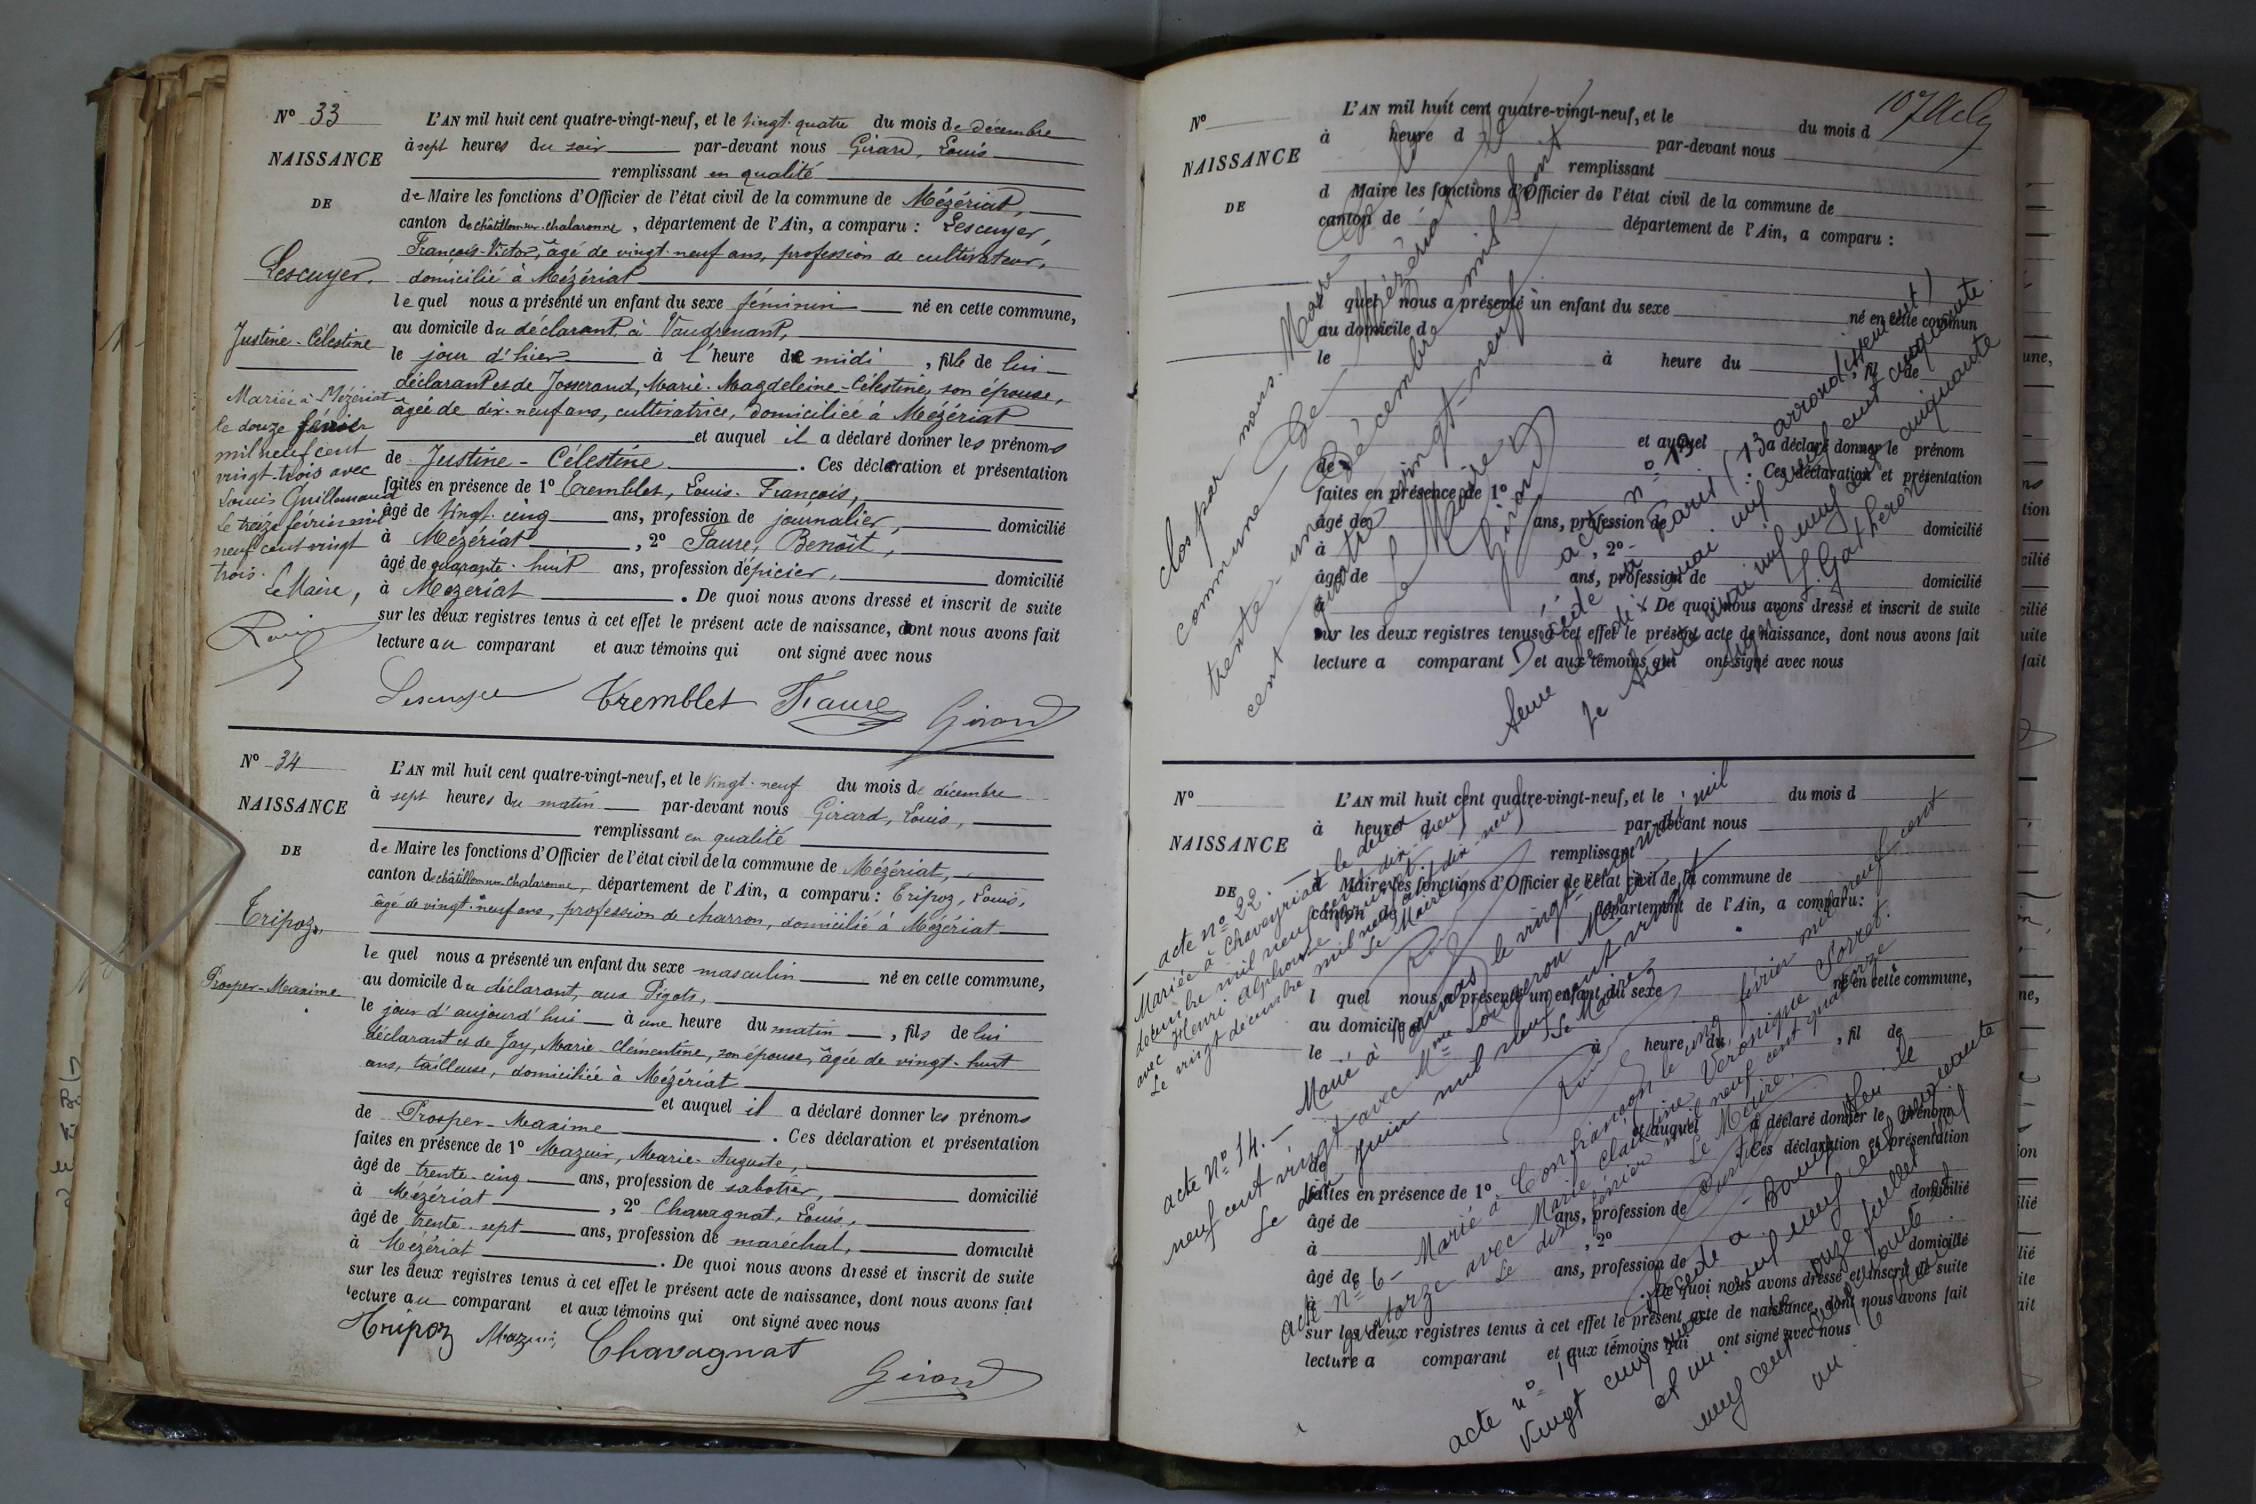 N° 33
NAISSANCE
DE
Lescuyer.
Justine-Célestine
Mariée à Mézériat
le douze février
mil neuf cent
vingt-trois avec
Louis Guillemaud
Le treize février mil
neuf cent vingt
trois.
Le Maire,
L'AN mil huit cent quatre-vingt-neuf, et le vingt-quatre du mois de décembre
à sept heures du soir par-devant nous Girard, Louis
remplissant en qualité
de Maire les fonctions d'Officier de l'état civil de la commune de Mézériat,
canton de châtillon-sur-chalaronne, département de l'Ain, a comparu : Lescuyer,
François-Victor, âgé de vingt-neuf ans, profession de cultivateur,
domicilié à Mézériat
lequel nous a présenté un enfant du sexe féminin né en cette commune,
au domicile du déclarant à Vaudrenant,
le jour d'hier à l'heure de midi, fille de lui
déclarant et de Josserand, Marie-Magdeleine-Célestine, son épouse,
âgée de dix-neuf ans, cultivatrice, domiciliée à Mézériat
et auquel il a déclaré donner les prénoms
de Justine-Célestine. Ces déclaration et présentation
faites en présence de 1° Tremblet, Louis-François,
âgé de vingt-cinq ans, profession de journalier, domicilié
à Mézériat, 2° Faure, Benoît,
âgé de quarante-huit ans, profession d'épicier, domicilié
à Mézériat. De quoi nous avons dressé et inscrit de suite
sur les deux registres tenus à cet effet le présent acte de naissance, dont nous avons fait
lecture au comparant et aux témoins qui ont signé avec nous
Lescuyer Tremblet Faure Girard
N° 34
NAISSANCE
DE
Tripoz,
Prosper-Maxime
L'AN mil huit cent quatre-vingt-neuf, et le vingt-neuf du mois de décembre
à sept heures du matin par-devant nous Girard, Louis,
remplissant en qualité
de Maire les fonctions d'Officier de l'état civil de la commune de Mézériat,
canton de châtillon-sur-Chalaronne, département de l'Ain, a comparu : Tripoz, Louis,
âgé de vingt-neuf ans, profession de charron, domicilié à Mézériat
lequel nous a présenté un enfant du sexe masculin né en cette commune,
au domicile du déclarant, aux Pigots,
le jour d'aujourd'hui à une heure du matin, fils de lui
déclarant et de Jay, Marie-Clémentine, son épouse, âgée de vingt-huit
ans, tailleuse, domiciliée à Mézériat
et auquel il a déclaré donner les prénoms
de Prosper-Maxime. Ces déclaration et présentation
faites en présence de 1° Mazuir, Marie-Auguste,
âgé de trente-cinq ans, profession de sabotier, domicilié
à Mézériat, 2° Chavagnat, Louis,
âgé de trente-sept ans, profession de maréchal, domicilié
à Mézériat. De quoi nous avons dressé et inscrit de suite
sur les deux registres tenus à cet effet le présent acte de naissance, dont nous avons fait
lecture au comparant et aux témoins qui ont signé avec nous
Tripoz Mazuir Chavagnat
Girard
107
N°
NAISSANCE
DE
L'AN mil huit cent quatre-vingt-neuf, et le du mois d
à heure d par-devant nous
remplissant
d Maire les fonctions d'Officier de l'état civil de la commune de
canton de département de l'Ain, a comparu :
l quel nous a présenté un enfant du sexe né en cette commun
au domicile d
le à heure du , fil de
et auquel a déclaré donner le prénom
de . Ces déclaration et présentation
faites en présence de 1°
âgé de ans, profession de domicilié
à , 2°
âgé de ans, profession de domicilié
à . De quoi nous avons dressé et inscrit de suite
sur les deux registres tenus à cet effet le présent acte de naissance, dont nous avons fait
lecture a comparant et aux témoins qui ont signé avec nous
Clos par nous, Maire de la
commune de Mézériat le
trente-un décembre mil huit
cent quatre-vingt-neuf
Le Maire
Girard
acte n° 13
Décédé à Paris (13 arrondissement)
Seine le dix mai mil neuf cent cinquante
Le trente mai mil neuf cent cinquante
signé J. Gatheron
N°
NAISSANCE
DE
L'AN mil huit cent quatre-vingt-neuf, et le du mois d
à heure d par-devant nous
remplissant
d Maire les fonctions d'Officier de l'état civil de la commune de
canton de département de l'Ain, a comparu :
l quel nous a présenté un enfant du sexe né en cette commune,
au domicile d
le à heure du , fil de
et auquel a déclaré donner le prénom
de . Ces déclaration et présentation
faites en présence de 1°
âgé de ans, profession de domicilié
à , 2°
âgé de ans, profession de domicilié
à . De quoi nous avons dressé et inscrit de suite
sur les deux registres tenus à cet effet le présent acte de naissance, dont nous avons fait
lecture a comparant et aux témoins qui ont signé avec nous
acte n° 22.
Mariée à Chaveyriat le deux
décembre mil neuf cent dix-neuf
avec Henri Alphonse
Le vingt décembre mil neuf cent dix-neuf
Le Maire
acte N° 14. - Marié à Vonnas le vingt-cinq mai mil
neuf cent vingt avec
Le dix juin mil neuf cent vingt
Le Maire
acte N° 6 - Marié à Confrançon le cinq février mil neuf cent
quatorze avec Marie Claudine Véronique Sorret.
Le dix février mil neuf cent quatorze
Le Maire.
acte n° 19 Décédé à Bourg Ain le
vingt cinq mai mil neuf cent cinquante
et un. Le onze juillet mil
neuf cent cinquante et
un.